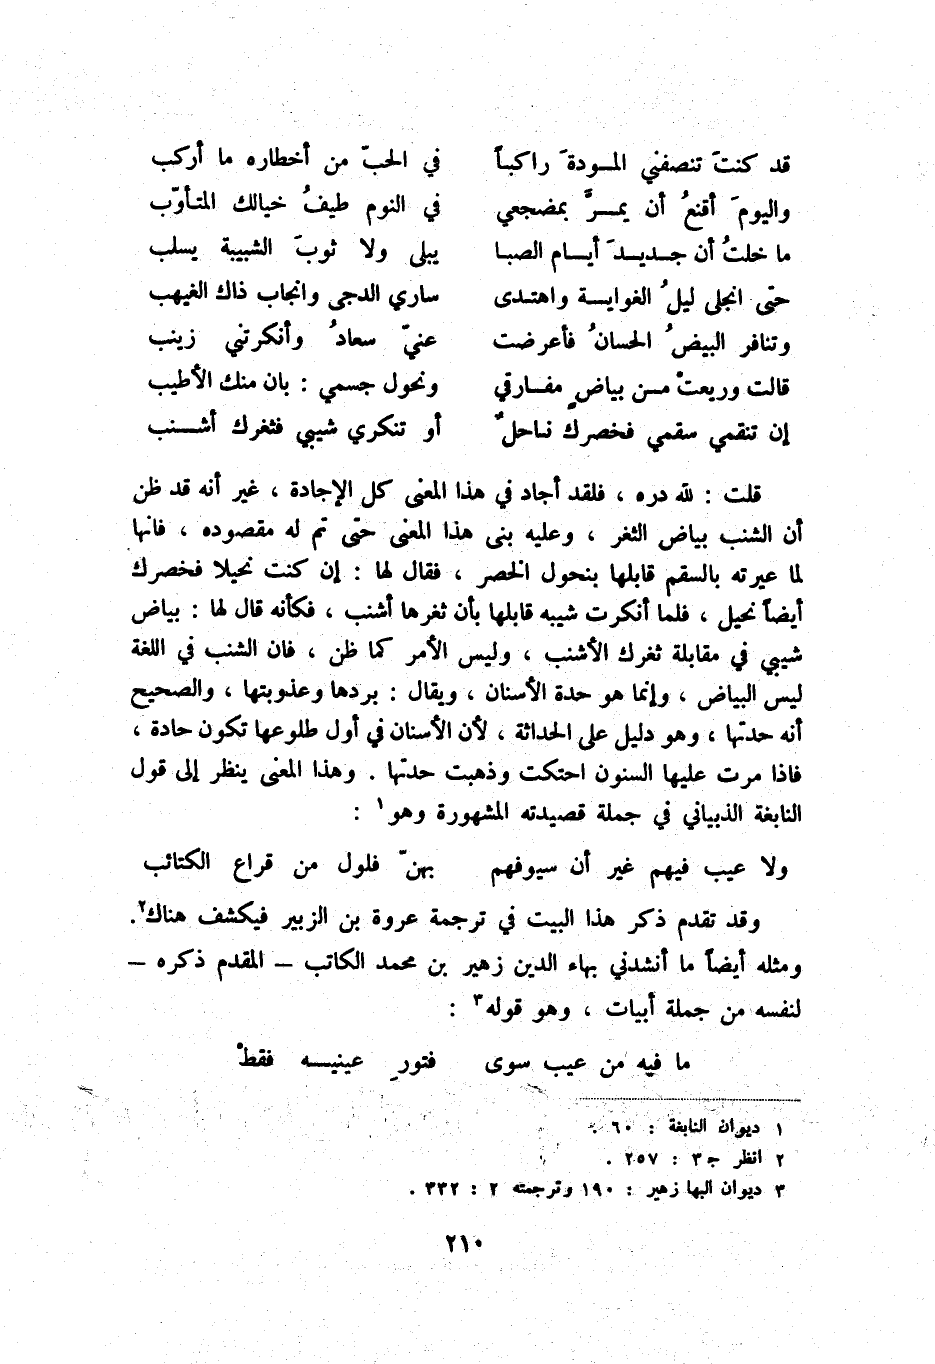 قد كنتَ تنصفني المودةَ راكباً في الحبّ من أخطاره ما أركب
واليومَ أقنعُ أن يمرَّ بمضجعي في النوم طيفُ خيالك المتأوّب
ما خلتُ أن جديدَ أيام الصبا يبلى ولا ثوبَ الشبيبة يسلب
حتى انجلى ليلُ الغواية واهتدى ساري الدجى وانجاب ذاك الغيهب
وتنافر البيضُ الحسانُ فأعرضت عنيّ سعادُ وأنكرتني زينب
قالت وريعتْ من بياضٍ مفارقي ونحول جسمي : بان منك الأطيب
إن تنقمي سقمي فخصرك ناحلٌ أو تنكري شيبي فثغرك أشنب
قلت : لله دره ، فلقد أجاد في هذا المعنى كل الإجادة ، غير أنه قد ظن
أن الشنب بياض الثغر ، وعليه بنى هذا المعنى حتى تم له مقصوده ، فانها
لما عيرته بالسقم قابلها بنحول الخصر ، فقال لها : إن كنت نحيلا فخصرك
أيضاً نحيل ، فلما أنكرت شيبه قابلها بأن ثغرها أشنب ، فكأنه قال لها : بياض
شيبي في مقابلة ثغرك الأشنب ، وليس الأمر كما ظن ، فان الشنب في اللغة
ليس البياض ، وإنما هو حدة الأسنان ، ويقال : بردها وعذوبتها ، والصحيح
أنه حدتها ، وهو دليل على الحداثة ، لأن الأسنان في أول طلوعها تكون حادة ،
فاذا مرت عليها السنون احتكت وذهبت حدتها . وهذا المعنى ينظر إلى قول
النابغة الذبياني في جملة قصيدته المشهورة وهو١ :
ولا عيب فيهم غير أن سيوفهم بهنّ فلول من قراع الكتائب
وقد تقدم ذكر هذا البيت في ترجمة عروة بن الزبير فيكشف هناك٢.
ومثله أيضاً ما أنشدني بهاء الدين زهير بن محمد الكاتب – المقدم ذكره –
لنفسه من جملة أبيات ، وهو قوله٣ :
ما فيه من عيب سوى فتورِ عينيه فقطْ
١ ديوان النابغة : ٦٠ .
٢ انظر ج٣ : ٢٥٧ .
٣ ديوان البها زهير : ١٩٠ وترجمته ٢ : ٣٣٢ .
٢١٠